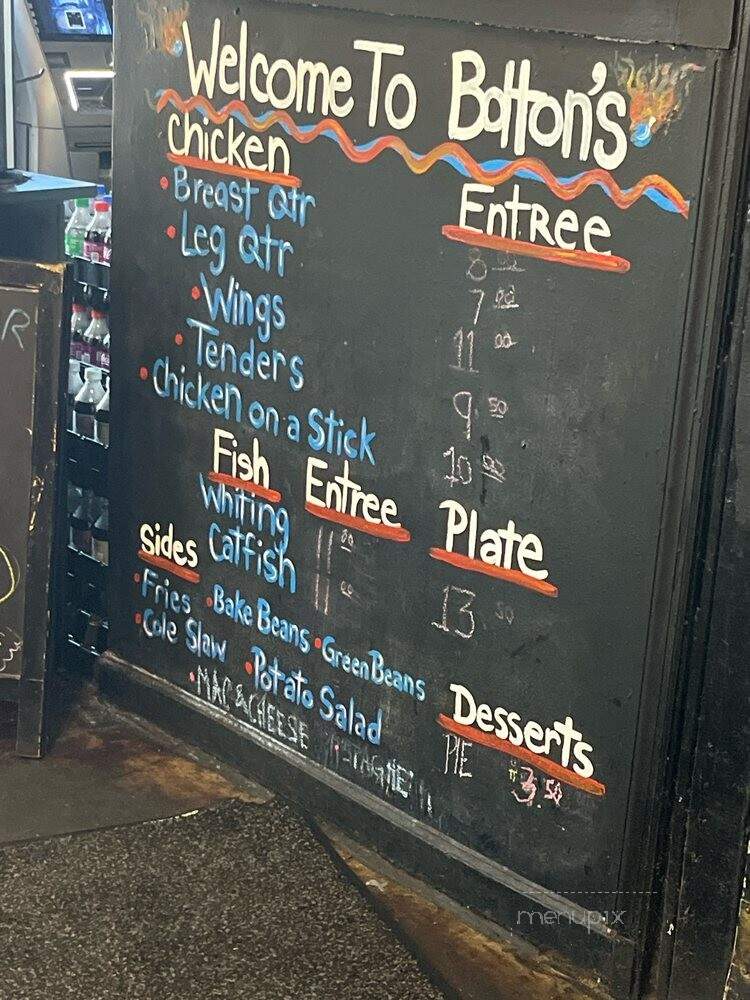 Welcome To Botton's
Chicken
Entree
• Breast Qtr 8 00
• Leg Qtr 7 00
• Wings 11 00
• Tenders 9 50
• Chicken on a Stick 10 00
Fish Entree Plate
Whiting 11 00 13 50
Catfish 11 00
Sides
• Fries • Bake Beans • Green Beans
• Cole Slaw • Potato Salad
• MAC & CHEESE
Desserts
PIE $3.50
R
menupix